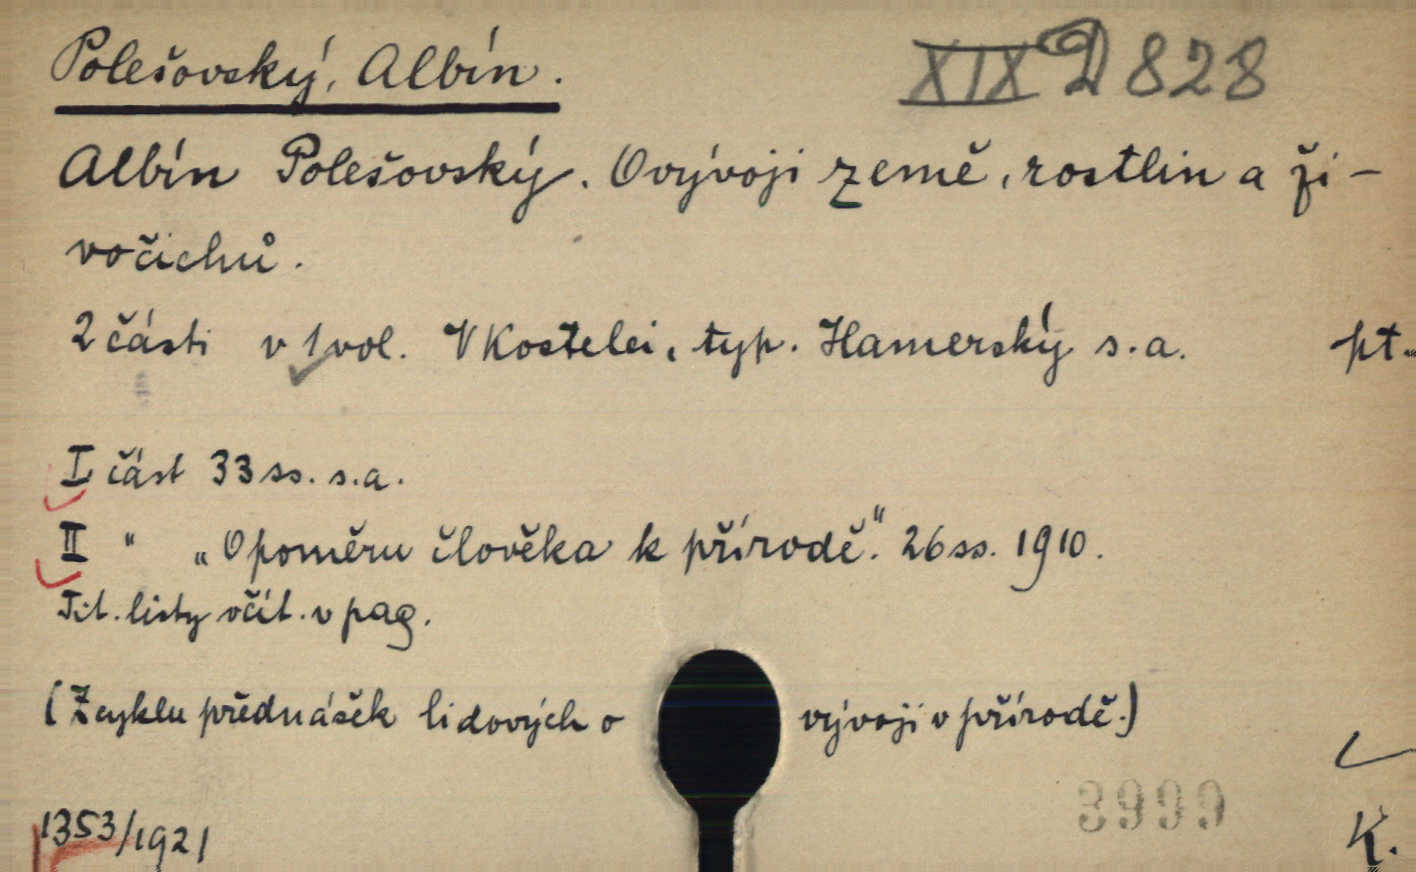 Polešovský, Albín.
XIX D 828
Albín Polešovský. O vývoji země, rostlin a ži-
vočichů.
2 části v 1 vol. V Kostelci, typ. Hamerský s.a. pt.
I část 33 ss. s.a.
II " „O poměru člověka k přírodě." 26 ss. 1910.
Tit. listy včít. v pag.
(Z cyklu přednášek lidových o vývoji v přírodě.)
3999
1353/1921
K.